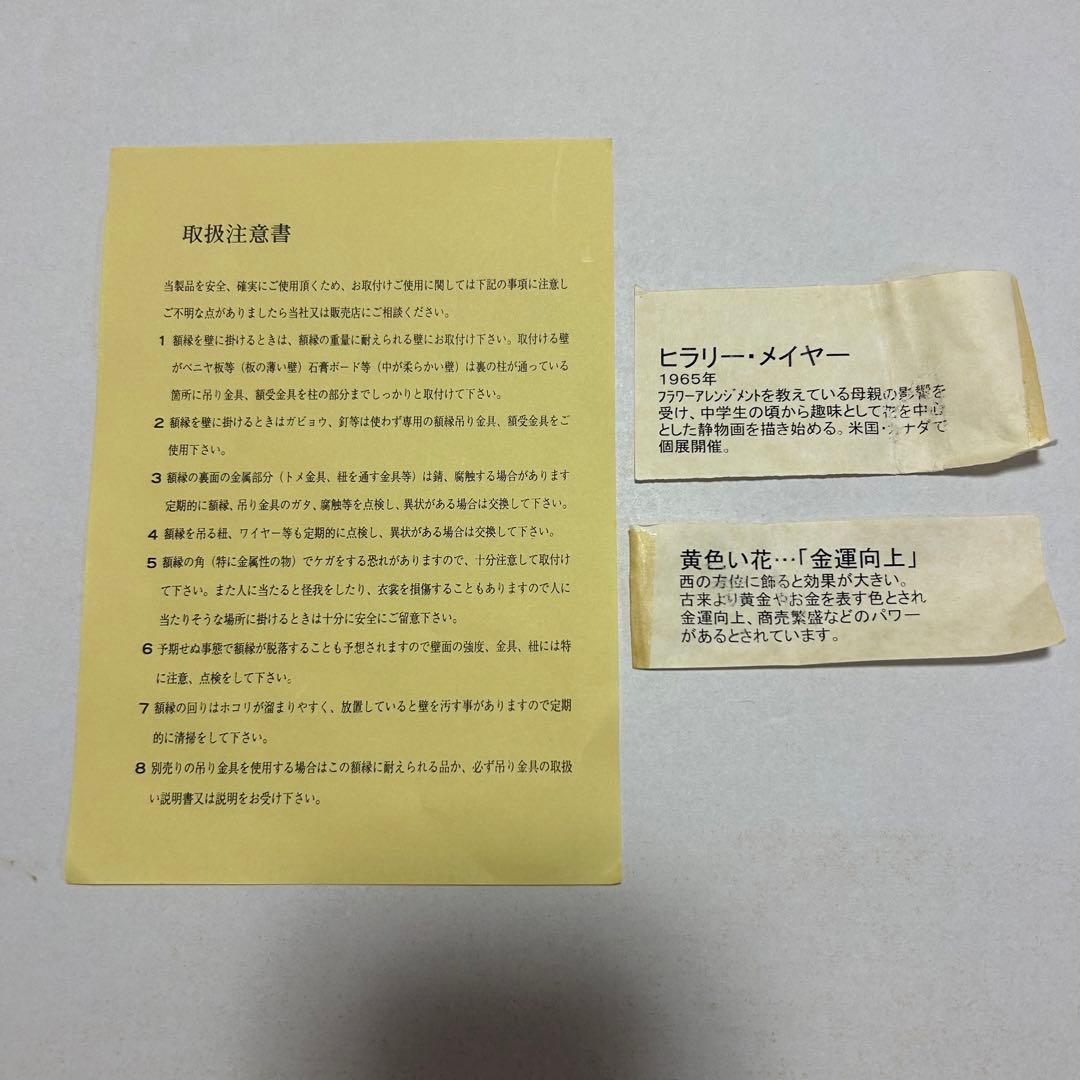 取扱注意書
当製品を安全、確実にご使用頂くため、お取付けご使用に関しては下記の事項に注意し
ご不明な点がありましたら当社又は販売店にご相談ください。
1 額縁を壁に掛けるときは、額縁の重量に耐えられる壁にお取付け下さい。取付ける壁
がベニヤ板等(板の薄い壁)石膏ボード等(中が柔らかい壁)は裏の柱が通っている
箇所に吊り金具、額受金具を柱の部分までしっかりと取付けて下さい。
2 額縁を壁に掛けるときはガビョウ、釘等は使わず専用の額縁吊り金具、額受金具をご
使用下さい。
3 額縁の裏面の金属部分(トメ金具、紐を通す金具等)は錆、腐触する場合があります
定期的に額縁、吊り金具のガタ、腐触等を点検し、異状がある場合は交換して下さい。
4 額縁を吊る紐、ワイヤー等も定期的に点検し、異状がある場合は交換して下さい。
5 額縁の角(特に金属性の物)でケガをする恐れがありますので、十分注意して取付け
て下さい。また人に当たると怪我をしたり、衣裳を損傷することもありますので人に
当たりそうな場所に掛けるときは十分に安全にご留意下さい。
6 予期せぬ事態で額縁が脱落することも予想されますので壁面の強度、金具、紐には特
に注意、点検をして下さい。
7 額縁の回りはホコリが溜まりやすく、放置していると壁を汚す事がありますので定期
的に清掃をして下さい。
8 別売りの吊り金具を使用する場合はこの額縁に耐えられる品か、必ず吊り金具の取扱
い説明書又は説明をお受け下さい。
ヒラリー・メイヤー
1965年
フラワーアレンジメントを教えている母親の影響を
受け、中学生の頃から趣味として花を中心
とした静物画を描き始める。米国・カナダで
個展開催。
黄色い花…「金運向上」
西の方位に飾ると効果が大きい。
古来より黄金やお金を表す色とされ
金運向上、商売繁盛などのパワー
があるとされています。